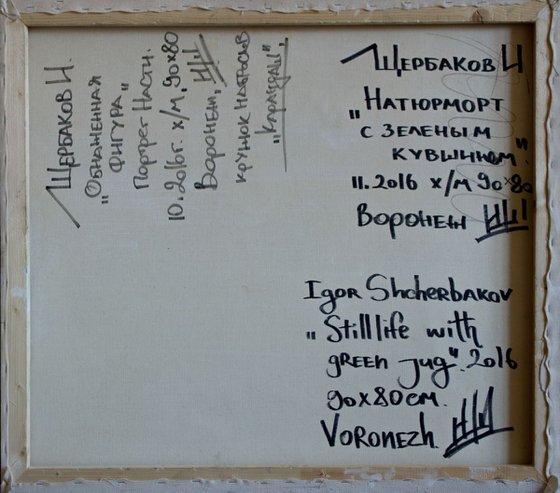 Щербаков И
"Натюрморт
с зеленым
кувшином"
11.2016 х/м 90×80
Воронеж
Igor Shcherbakov
"Still life with
green jug". 2016
90x80 см.
Voronezh.
Щербаков И.
"Обнаженная
фигура"
Портрет Насти.
10.2016г. х/м, 90×80
Воронеж,
кружок набросков
"Карандаш".